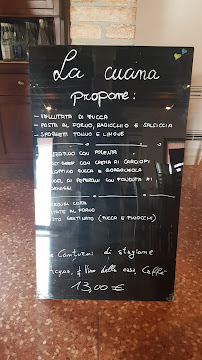 La cucina
propone:
- VELLUTATA DI ZUCCA
- PASTA AL FORNO, RADICCHIO E SALSICCIA
- SPAGHETTI TONNO E LIMONE
CON POLENTA
CON CREMA AI CARCIOFI
ZUCCA E GORGONZOLA
DI PEPERONI CON FONDUTA AI
FORMAGGI
VERDURA COTTA
PATATE AL FORNO
MISTO GRATINATO (ZUCCA E FINOCCHI)
Contorni di stagione
Acqua, 1/4 vino della casa, Caffè
13,00 €